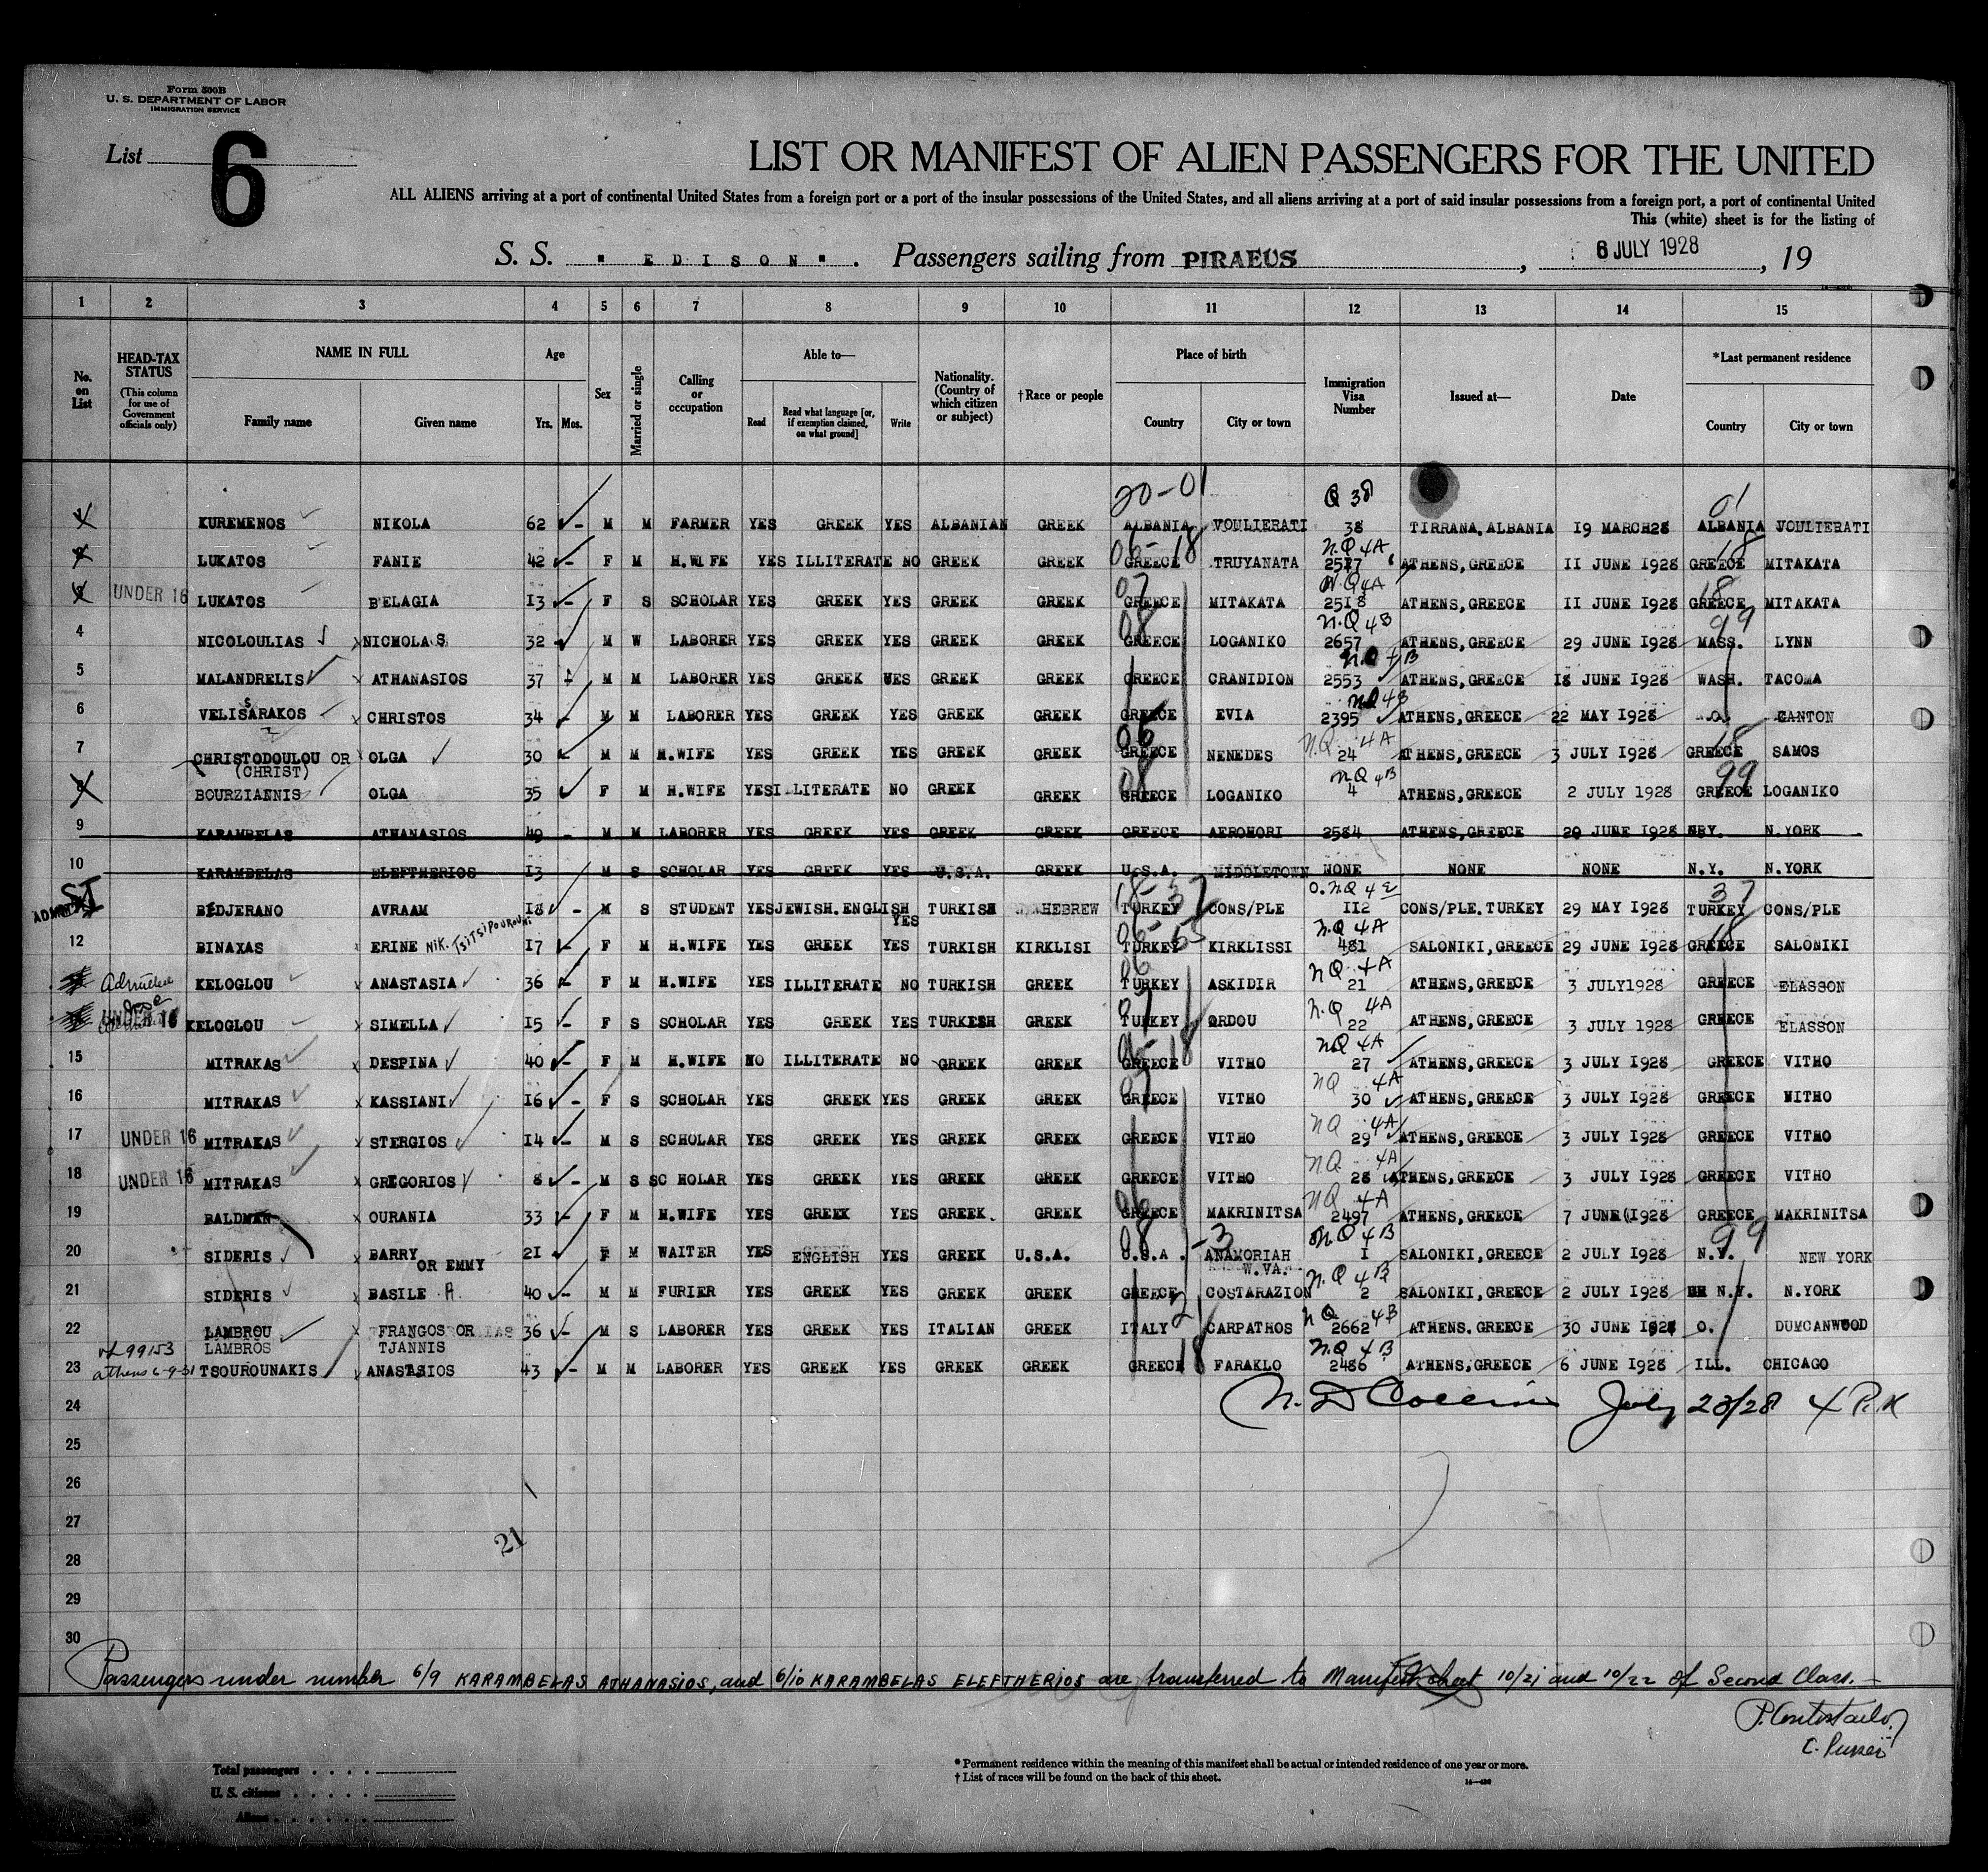 Form 500B
U. S. DEPARTMENT OF LABOR
IMMIGRATION SERVICE
List 6
LIST OR MANIFEST OF ALIEN PASSENGERS FOR THE UNITED
ALL ALIENS arriving at a port of continental United States from a foreign port or a port of the insular possessions of the United States, and all aliens arriving at a port of said insular possessions from a foreign port, a port of continental United
This (white) sheet is for the listing of
S. S. "EDISON". Passengers sailing from PIRAEUS, 6 JULY 1928, 19
1 2 3 4 5 6 7 8 9 10 11 12 13 14 15
No. on List
HEAD-TAX STATUS (This column for use of Government officials only)
NAME IN FULL Family name Given name
Age Yrs. Mos.
Sex
Married or single
Calling or occupation
Able to— Read Read what language [or, if exemption claimed, on what ground] Write
Nationality. (Country of which citizen or subject)
†Race or people
Place of birth Country City or town
Immigration Visa Number
Issued at—
Date
*Last permanent residence Country City or town
20-01 Q 38 01
KUREMENOS NIKOLA 62 - M M FARMER YES GREEK YES ALBANIAN GREEK ALBANIA VOULIERATI 38 TIRRANA, ALBANIA 19 MARCH28 ALBANIA VOULIERATI
06-18 N.Q 4A 18
LUKATOS FANIE 42 - F M H.WIFE YES ILLITERATE NO GREEK GREEK GREECE TRUYANATA 2517 ATHENS, GREECE 11 JUNE 1928 GREECE MITAKATA
07 N.Q 4A 18
UNDER 16 LUKATOS BELAGIA 13 - F S SCHOLAR YES GREEK YES GREEK GREEK GREECE MITAKATA 2518 ATHENS, GREECE 11 JUNE 1928 GREECE MITAKATA
08 N.Q 4B 99
4 NICOLOULIAS NICHOLAS 32 M W LABORER YES GREEK YES GREEK GREEK GREECE LOGANIKO 2657 ATHENS, GREECE 29 JUNE 1928 MASS. LYNN
N.Q 4B
5 MALANDRELIS ATHANASIOS 37 M M LABORER YES GREEK YES GREEK GREEK GREECE CRANIDION 2553 ATHENS, GREECE 18 JUNE 1928 WASH. TACOMA
NQ 4B
6 VELISSARAKOS CHRISTOS 34 - M M LABORER YES GREEK YES GREEK GREEK GREECE EVIA 2395 ATHENS, GREECE 22 MAY 1928 O. CANTON
06 N.Q 4A 18
7 CHRISTODOULOU OR (CHRIST) OLGA 30 M M H.WIFE YES GREEK YES GREEK GREEK GREECE NENEDES 24 ATHENS, GREECE 3 JULY 1928 GREECE SAMOS
08 N.Q 4B 99
8 BOURZIANNIS OLGA 35 F M H.WIFE YES ILLITERATE NO GREEK GREEK GREECE LOGANIKO 4 ATHENS, GREECE 2 JULY 1928 GREECE LOGANIKO
9 KARAMBELAS ATHANASIOS 49 - M M LABORER YES GREEK YES GREEK GREEK GREECE AEROHORI 2584 ATHENS, GREECE 20 JUNE 1928 N.Y. N.YORK
10 KARAMBELAS ELEFTHERIOS 13 M S SCHOLAR YES GREEK YES U.S.A. GREEK U.S.A. MIDDLETOWN NONE NONE NONE N.Y. N.YORK
18-37 O.NQ 4E 37
BEDJERANO AVRAAM 18 - M S STUDENT YES JEWISH.ENGLISH YES TURKISH HEBREW TURKEY CONS/PLE 112 CONS/PLE. TURKEY 29 MAY 1928 TURKEY CONS/PLE
N.Q 4A 18
12 BINAXAS ERINE NIK. TSITSIPOUROUNI 17 - F M H.WIFE YES GREEK YES TURKISH KIRKLISI TURKEY KIRKLISSI 481 SALONIKI, GREECE 29 JUNE 1928 GREECE SALONIKI
06 NQ 4A
Admitted KELOGLOU ANASTASIA 36 F M H.WIFE YES ILLITERATE NO TURKISH GREEK TURKEY ASKIDIR 21 ATHENS, GREECE 3 JULY1928 GREECE ELASSON
07 N.Q 4A
UNDER 16 KELOGLOU SIMELLA 15 - F S SCHOLAR YES GREEK YES TURKESH GREEK TURKEY ORDOU 22 ATHENS, GREECE 3 JULY 1928 GREECE ELASSON
06-18 NQ 4A
15 MITRAKAS DESPINA 40 - F M H.WIFE NO ILLITERATE NO GREEK GREEK GREECE VITHO 27 ATHENS, GREECE 3 JULY 1928 GREECE VITHO
07 NQ 4A
16 MITRAKAS KASSIANI 16 - F S SCHOLAR YES GREEK YES GREEK GREEK GREECE VITHO 30 ATHENS, GREECE 3 JULY 1928 GREECE VITHO
NQ 4A
17 UNDER 16 MITRAKAS STERGIOS 14 - M S SCHOLAR YES GREEK YES GREEK GREEK GREECE VITHO 29 ATHENS, GREECE 3 JULY 1928 GREECE VITHO
NQ 4A
18 UNDER 16 MITRAKAS GREGORIOS 8 - M S SC HOLAR YES GREEK YES GREEK GREEK GREECE VITHO 28 ATHENS, GREECE 3 JULY 1928 GREECE VITHO
06 NQ 4A
19 BALDMAN OURANIA 33 - F M H.WIFE YES GREEK YES GREEK. GREEK GREECE MAKRINITSA 2497 ATHENS, GREECE 7 JUNE 1928 GREECE MAKRINITSA
08 -3 N.Q 4B 99
20 SIDERIS BARRY OR EMMY 21 F M WAITER YES ENGLISH YES GREEK U.S.A. U.S.A. ANAMORIAH W.VA. 1 SALONIKI, GREECE 2 JULY 1928 N.Y. NEW YORK
N.Q 4B
21 SIDERIS BASILE A. 40 - M M FURIER YES GREEK YES GREEK GREEK GREECE COSTARAZION 2 SALONIKI, GREECE 2 JULY 1928 N.Y. N.YORK
21 NQ 4B
22 LAMBROU LAMBROS FRANGOS OR TJANNIS 36 - M S LABORER YES GREEK YES ITALIAN GREEK ITALY CARPATHOS 2662 ATHENS. GREECE 30 JUNE 1928 O. DUMCANWOOD
99153 18 N.Q 4B
23 athens 6-9-31 TSOUROUNAKIS ANASTASIOS 43 - M M LABORER YES GREEK YES GREEK GREEK GREECE FARAKLO 2486 ATHENS, GREECE 6 JUNE 1928 ILL. CHICAGO
24 July 23/28
25
26
27
21
28
29
30
Passengers under number 6/9 KARAMBELAS ATHANASIOS, and 6/10 KARAMBELAS ELEFTHERIOS are transferred to Manifest sheet 10/21 and 10/22 of Second Class.
Total passengers . . . .
U. S. citizens . . . . .
Aliens . . . . . .
* Permanent residence within the meaning of this manifest shall be actual or intended residence of one year or more.
† List of races will be found on the back of this sheet.